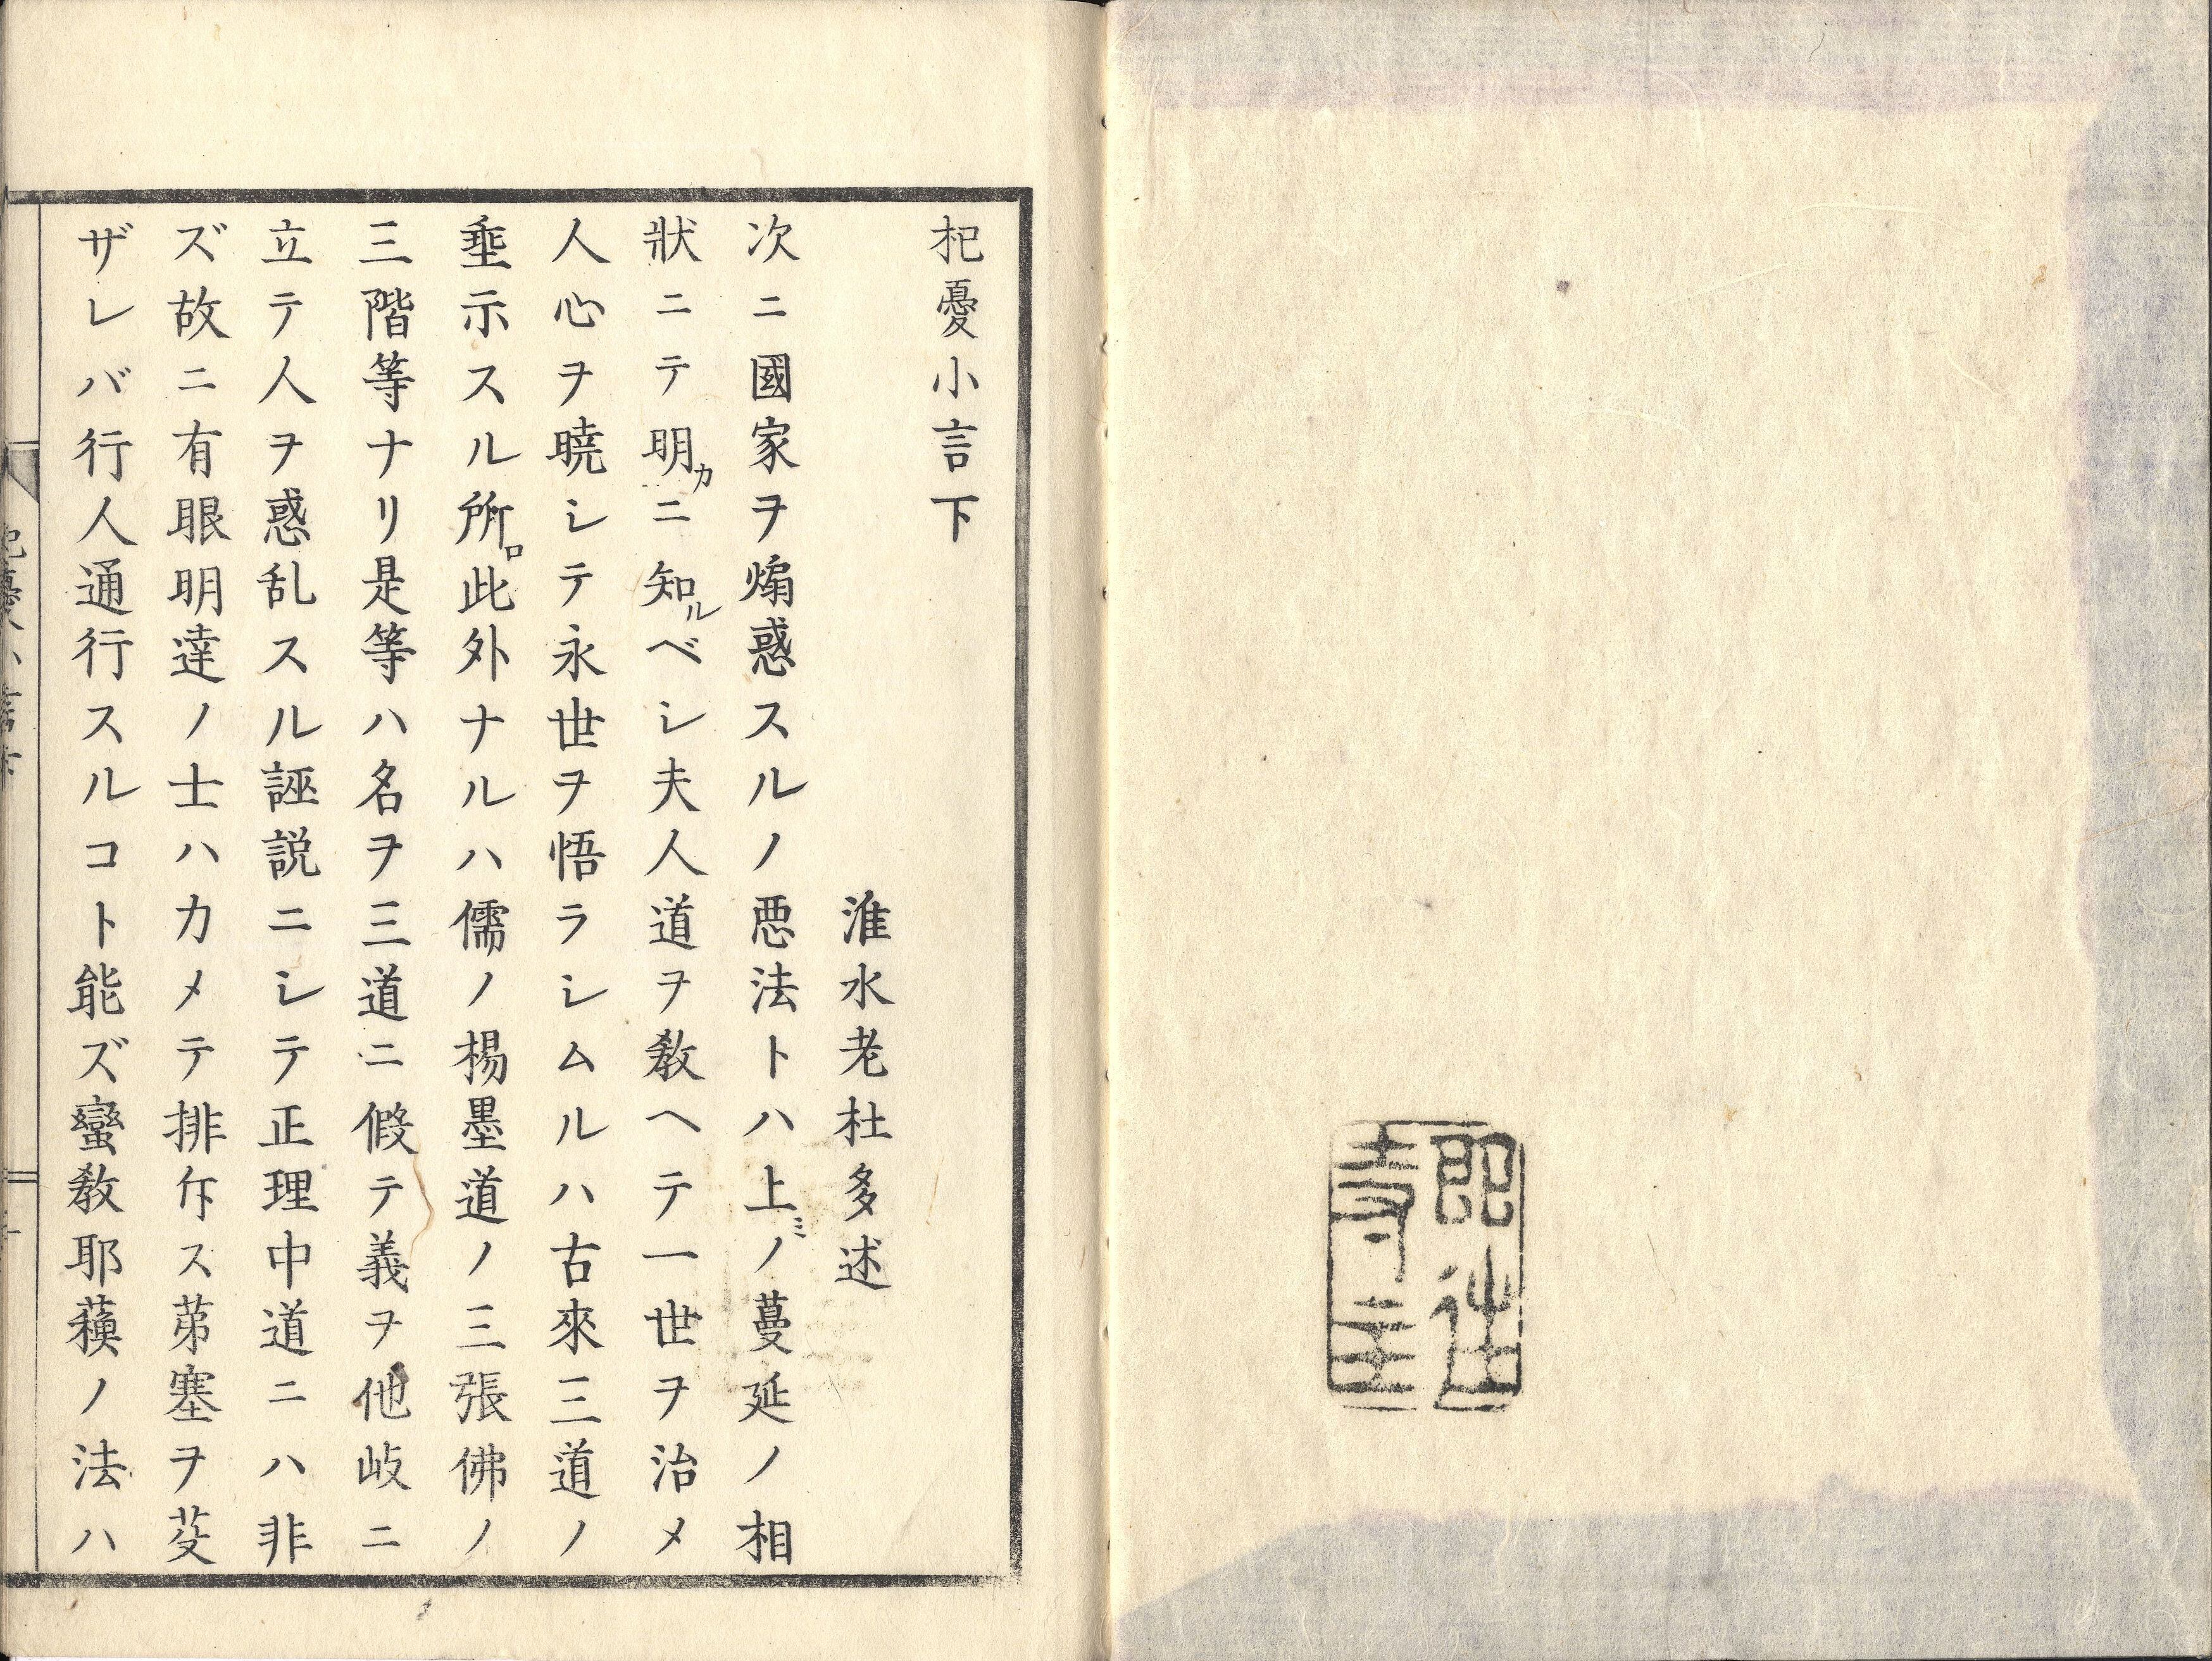 即往
寺主
杞憂小言下
淮水老杜多述
次ニ國家ヲ煽惑スルノ悪法トハ上ミノ蔓延ノ相
狀ニテ明カニ知ルベシ夫人道ヲ敎ヘテ一世ヲ治メ
人心ヲ曉シテ永世ヲ悟ラシムルハ古來三道ノ
垂示スル所ロ此外ナルハ儒ノ楊墨道ノ三張佛ノ
三階等ナリ是等ハ名ヲ三道ニ假テ義ヲ他岐ニ
立テ人ヲ惑乱スル誣説ニシテ正理中道ニハ非
ズ故ニ有眼明達ノ士ハカメテ排斥ス茀塞ヲ芟
ザレバ行人通行スルコト能ズ蠻敎耶蘓ノ法ハ